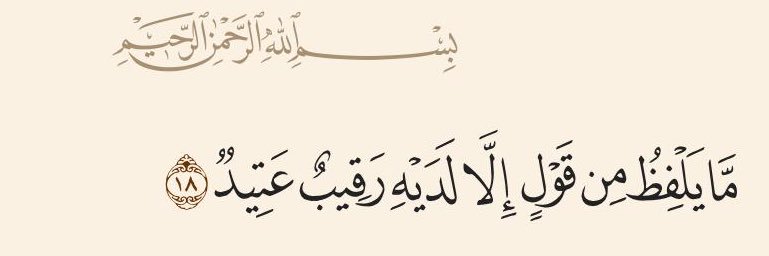 بِسْمِ ٱللَّهِ ٱلرَّحْمَٰنِ ٱلرَّحِيمِ
مَّا يَلْفِظُ مِن قَوْلٍ إِلَّا لَدَيْهِ رَقِيبٌ عَتِيدٌ ١٨